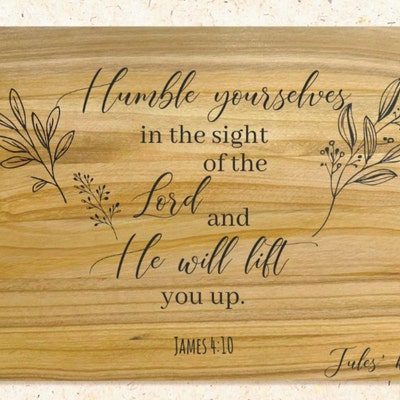 Humble yourselves
in the sight
of the
Lord and
He will lift
you up.
James 4:10
Jules'